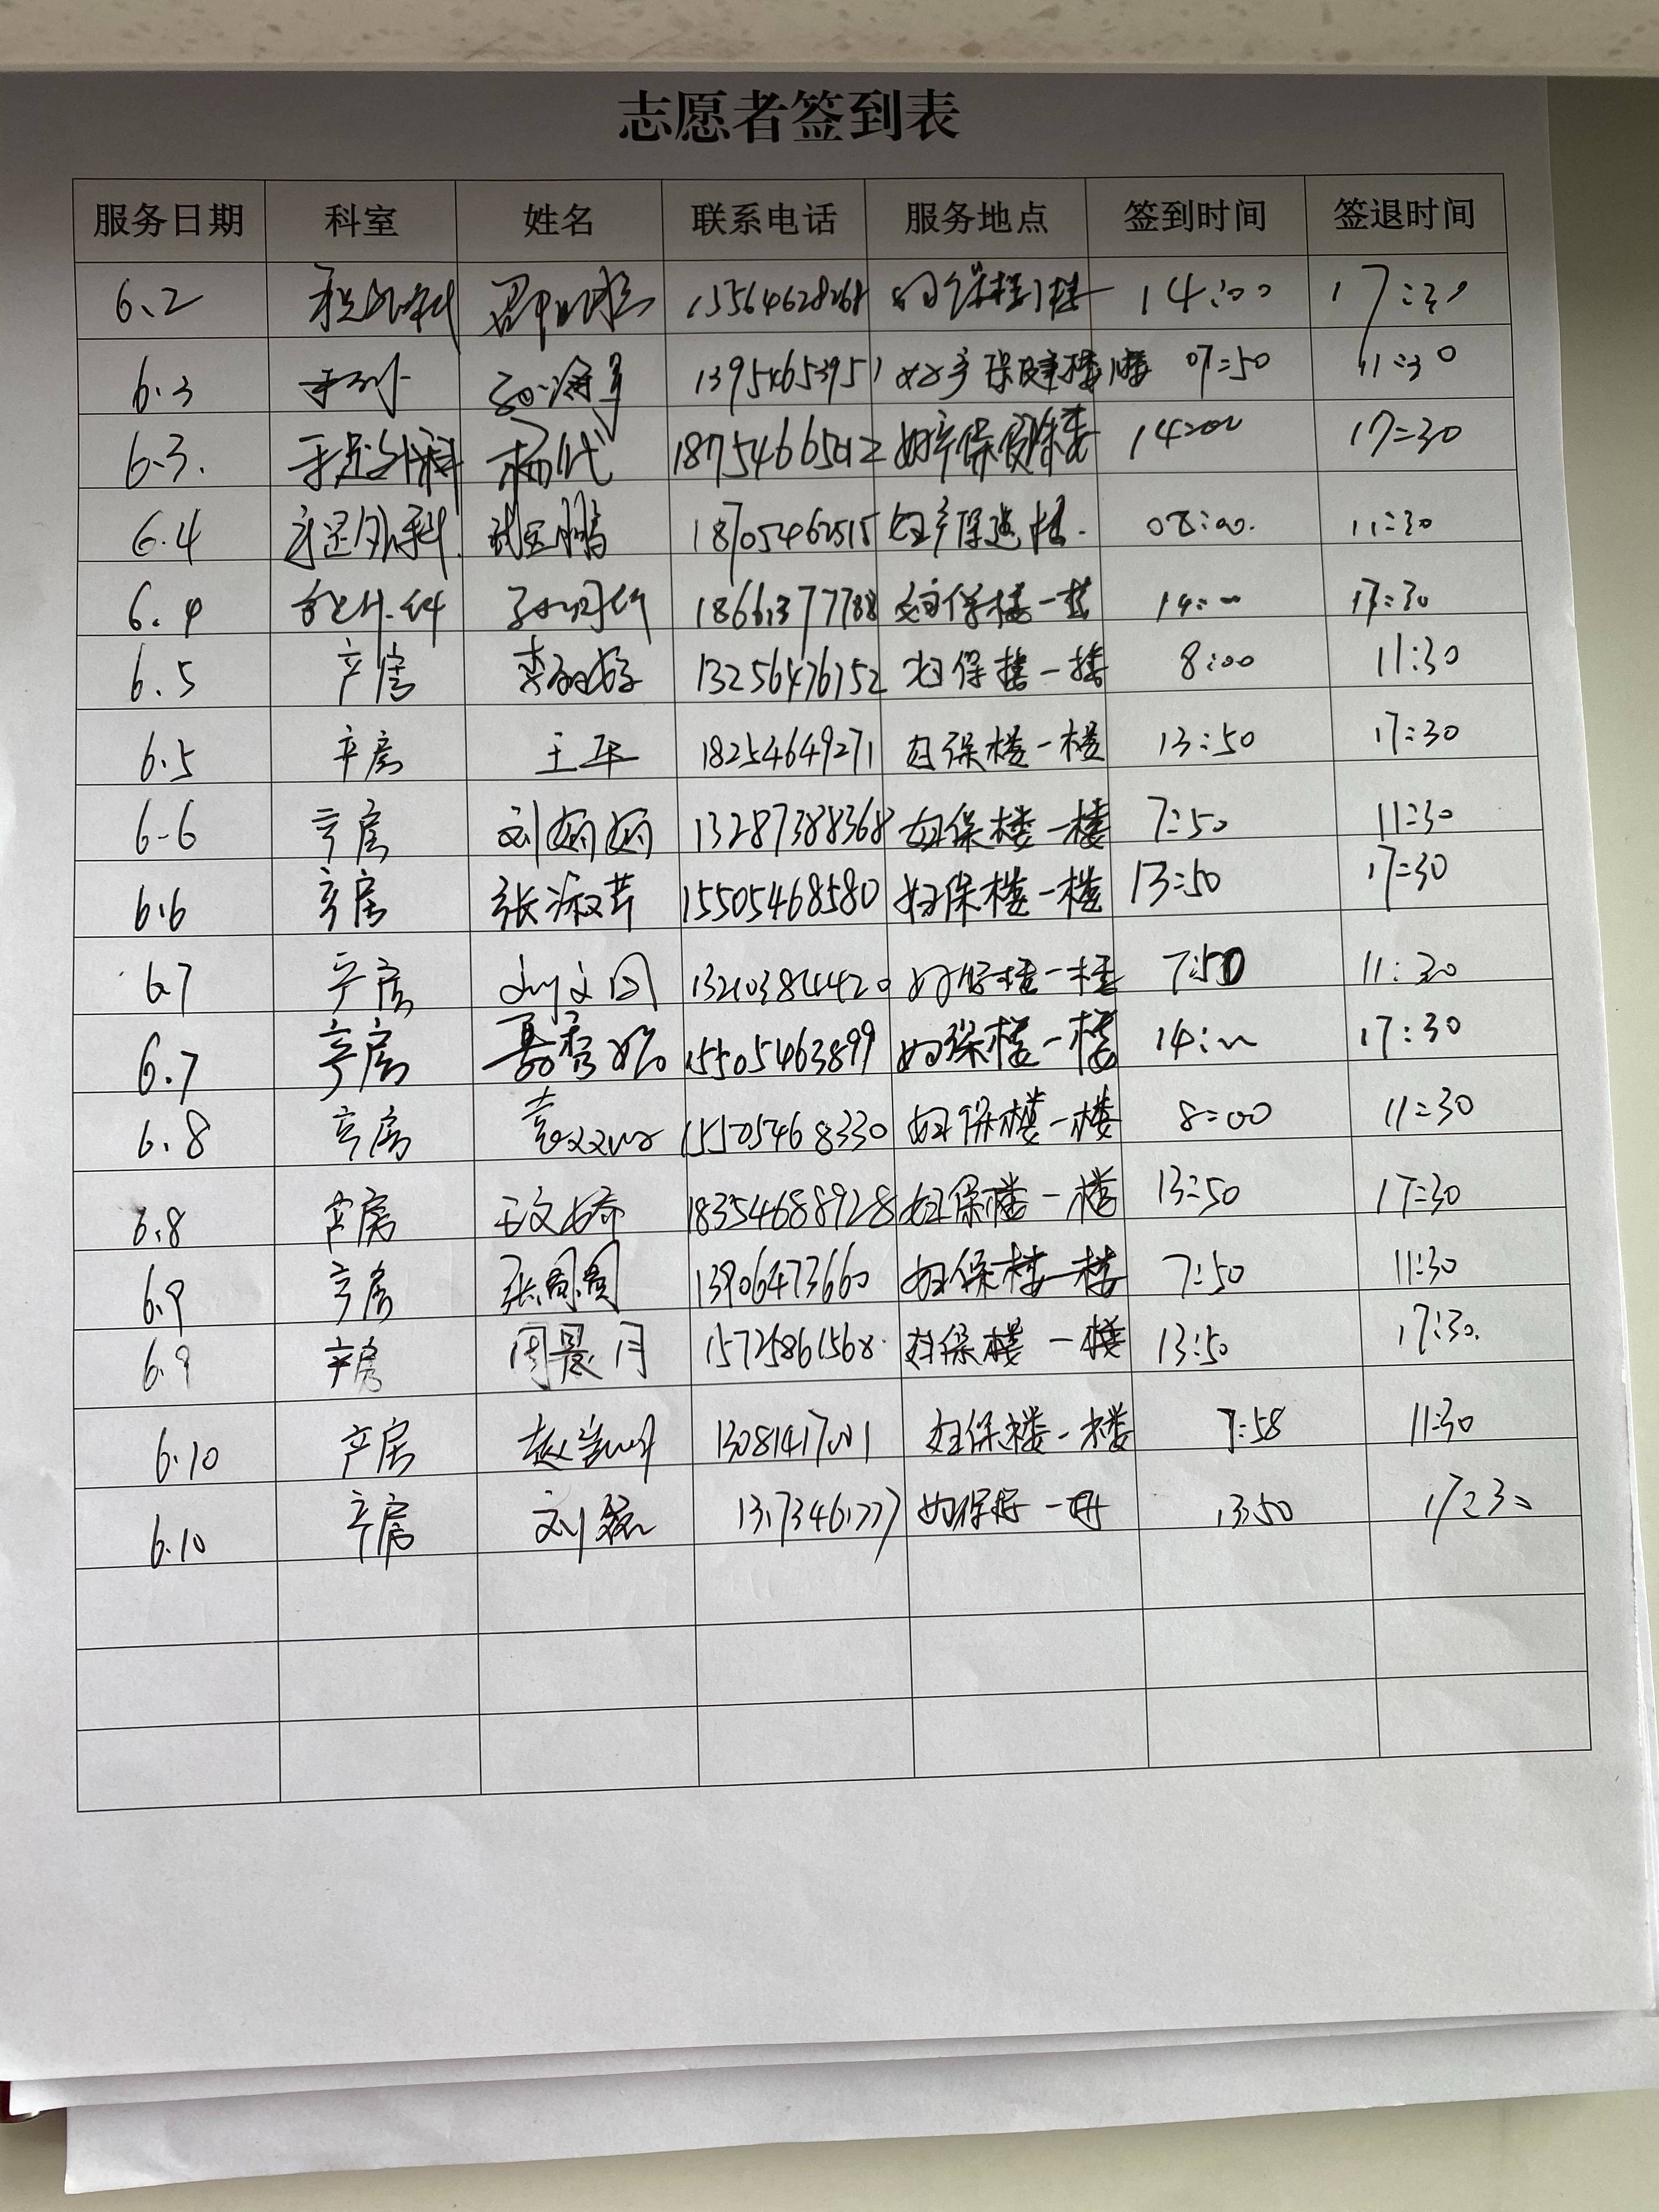 志愿者签到表
服务日期 科室 姓名 联系电话 服务地点 签到时间 签退时间
6.2 15564628268 14:00 17:30
6.3 13954653951 妇产保健楼1楼 07:50 11:30
6.3. 手足外科 杨代 18754665012 14:00 17:30
6.4 手足外科 18705462515 08:00. 11:30
6.4 18661377788 妇保楼一楼 14:00 17:30
6.5 产房 13256476752 妇保楼一楼 8:00 11:30
6.5 产房 王平 18254649271 妇保楼一楼 13:50 17:30
6-6 产房 刘娟娟 13287388368 妇保楼一楼 7:50 11:30
6.6 产房 张淑芹 15505468580 妇保楼一楼 13:50 17:30
6.7 产房 刘文囡 13210384420 妇保楼一楼 7:50 11:30
6.7 产房 聂秀 15505463899 妇保楼一楼 14:00 17:30
6.8 产房 袁双双 15505468330 妇保楼一楼 8:00 11:30
6.8 产房 王文娇 18354688928 妇保楼一楼 13:50 17:30
6.9 产房 张圆圆 13906473660 妇保楼一楼 7:50 11:30
6.9 产房 周景月 15725861568 妇保楼一楼 13:50 17:30.
6.10 产房 赵 13081417001 妇保楼一楼 7:58 11:30
6.10 产房 刘磊 妇保楼一楼 13:50 17:30